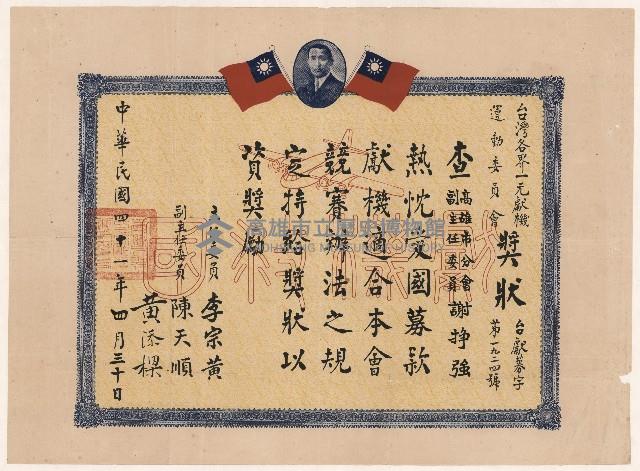 台灣各界一元獻機
運動委員會
獎狀
台獻募字
第一九二四號
查高雄市分會副主任委員謝掙強
熱忱愛國募款
獻機適合本會
競賽辦法之規
定特給獎狀以
資獎勵
主任委員 李宗黃
副主任委員 陳天順
黃添樑
中華民國四十一年四月三十日
高雄市立歷史博物館